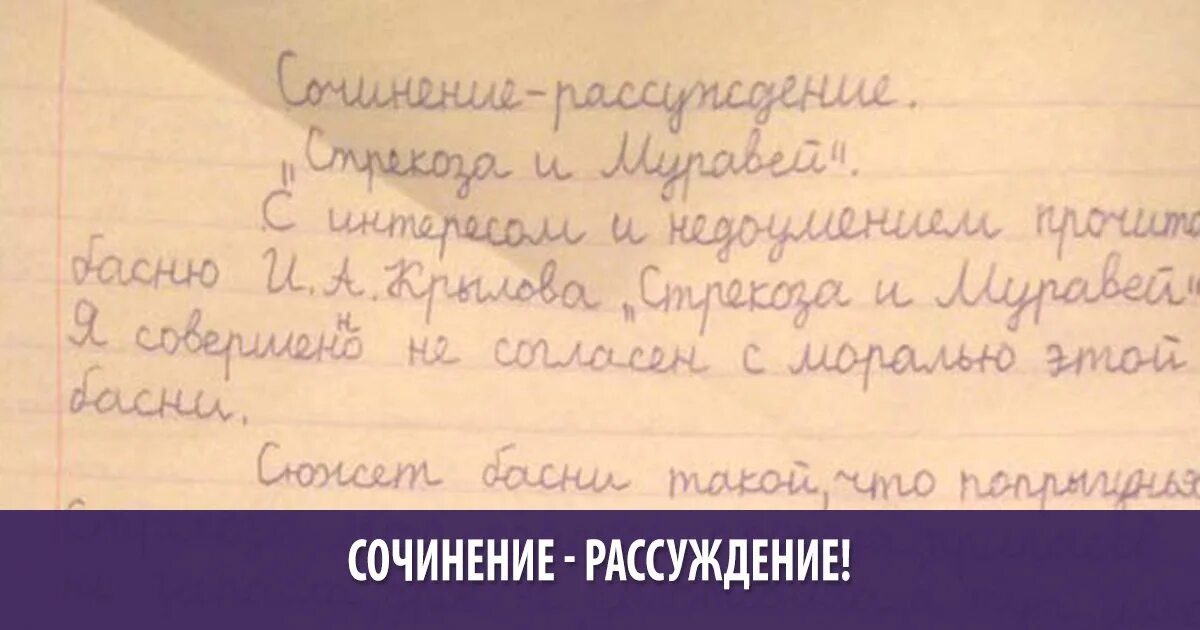 Сочинение-рассуждение.
"Стрекоза и Муравей".
С интересом и недоумением прочита
басню И.А.Крылова "Стрекоза и Муравей"
Я совершенно не согласен с моралью этой
басни.
Сюжет басни такой, что попрыгунья
СОЧИНЕНИЕ - РАССУЖДЕНИЕ!